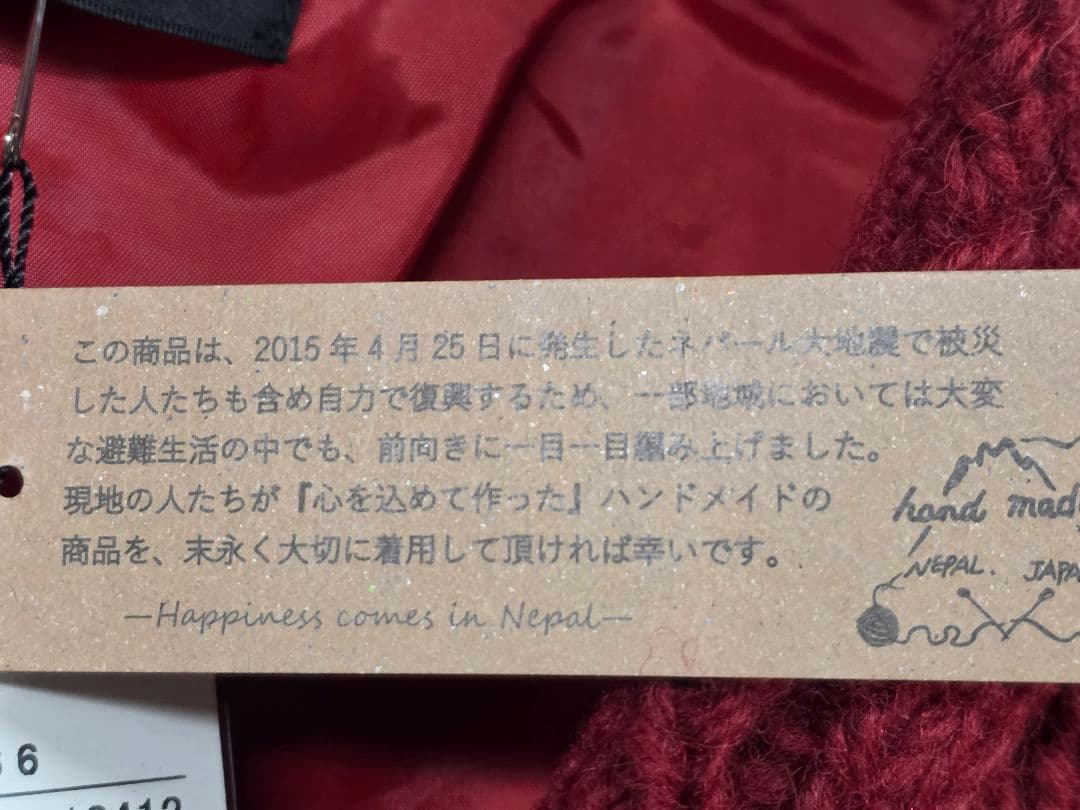 この商品は、2015年4月25日に発生したネパール大地震で被災
した人たちも含め自力で復興するため、一部地域においては大変
な避難生活の中でも、前向きに一目一目編み上げました。
現地の人たちが『心を込めて作った』ハンドメイドの
商品を、末永く大切に着用して頂ければ幸いです。
—Happiness comes in Nepal—
hand mad
NEPAL. JAPA
6